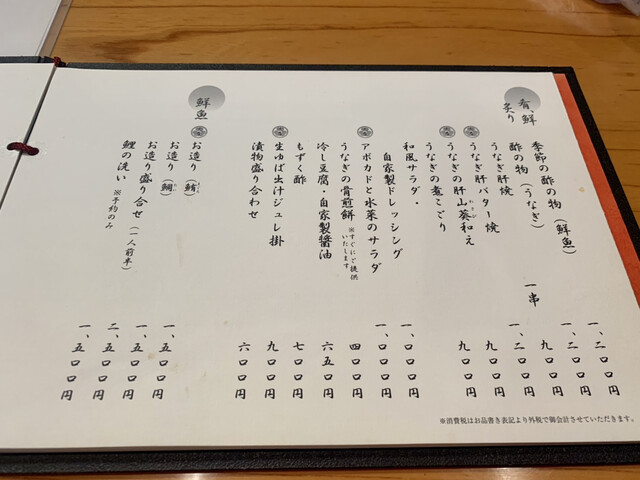 肴、鮮
炙り
季節の酢の物(鮮魚) 一、二〇〇円
酢の物(うなぎ) 一、二〇〇円
うなぎ肝焼 一串 九〇〇円
うなぎ肝バター焼 一、二〇〇円
うなぎの肝山葵和え 九〇〇円
うなぎの煮こごり 九〇〇円
和風サラダ・
自家製ドレッシング 一、〇〇〇円
アボカドと水菜のサラダ 一、〇〇〇円
うなぎの骨煎餅 ※すぐにご提供いたします 四〇〇円
冷し豆腐・自家製醤油 六五〇円
もずく酢 七〇〇円
生ゆば出汁ジュレ掛 九〇〇円
漬物盛り合わせ 六〇〇円
鮮魚
お造り(鮪) 一、五〇〇円
お造り(鯛) 一、五〇〇円
お造り盛り合せ(一人前半) 二、五〇〇円
鯉の洗い ※予約のみ 一、五〇〇円
※消費税はお品書き表記より外税で御会計させていただきます。